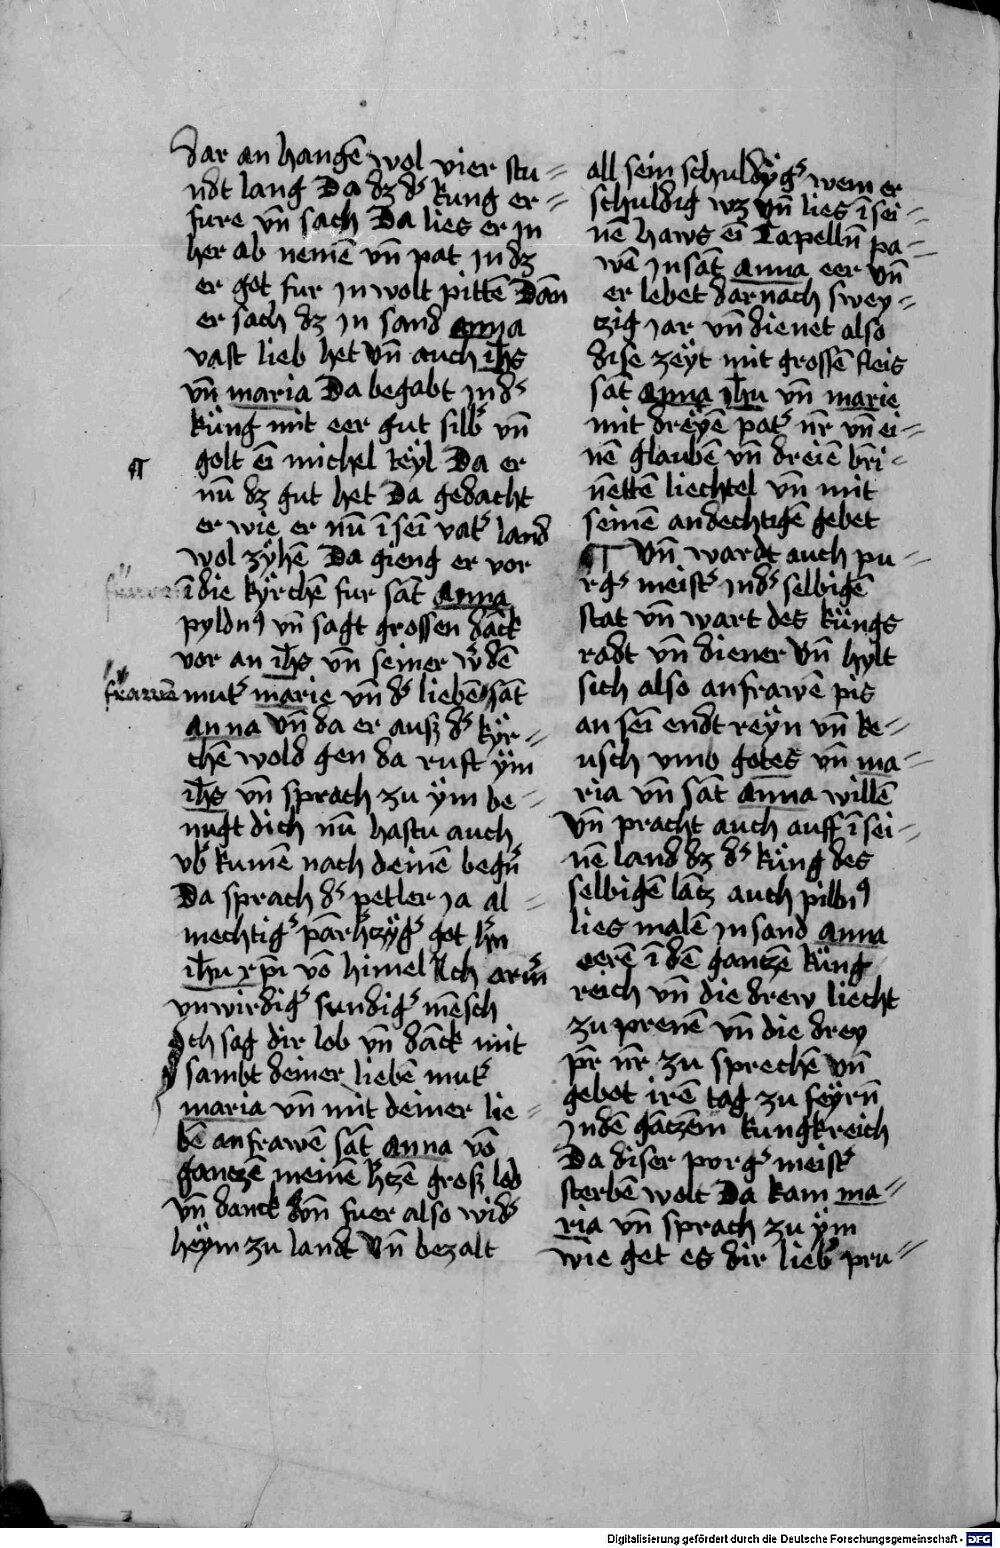 dar an hangē wol vier stu=
ndt lang Da dz dˢ kung er=
fure vn̄ sach Da lies er jn
her ab nemē vn̄ pat jn dz
er got fur jn wolt pittē Dān
er sach dz jn sand anna
vast lieb het vn̄ auch ih̄s
vn̄ maria Da begabt jn dˢ
kŭng mit eer gut silbˢ vn̄
¶ golt eī michel teÿl Da er
nū dz gut het Da gedacht
er wie er nū ī seī vatˢ land
wol zÿhē Da gieng er vor
ī die kÿrchē fur sāt Anna
pyldnꝰ vn̄ sagt grossen dāck
vor an ih̄s vn̄ seiner w̄dē
frawē mutˢ marie vn̄ dˢ liebē sāt
anna vn̄ da er ausz dˢ kÿr=
chē wold gen da ruft ÿm
ih̄s vn̄ sprach zu ÿm be=
nugt dich nū hastu auch
vbˢ kumē nach deinē begn̄
Da sprach dˢ petler ja al=
mechtigˢ pārhˢtzÿgˢ got hˢn
ih̄u xp̄i vō himel Ich arm̄
vnwirdigˢ sundigˢ mēsch
Ich sag dir lob vn̄ dāck mit
sambt deiner liebē mutˢ
maria vn̄ mit deiner lie=
bē anfrawē sāt anna vō
gantzē meinē hˢtzē grosz lob
vn̄ danck vn̄ fuer also widˢ
heÿm zu landt vn̄ bezalt
all sein schuldÿgˢ wem er
schuldig wz vn̄ lies ī sei=
nē haws eī Capelln̄ pa=
wē jn sāt anna eer vn̄
er lebet darnach swey=
tzig jar vn̄ dienet also
dise zeÿt mit grossē fleis
sāt Anna ih̄u vn̄ marie
mit dreÿē patˢ nr̄ vn̄ ei=
nē glaubē vn̄ dreiē bri=
nettē liechtel vn̄ mit
seinē andechtigē gebet
¶ Vn̄ wardt auch pu=
rgˢ meistˢ jn dˢ selbigē
stat vn̄ wart des kŭngs
radt vn̄ diener vn̄ hylt
sich also an frawē pis
an seī endt reÿn vn̄ ke=
usch vmb gotes vn̄ ma=
ria vn̄ sāt anna willē
Vn̄ pracht auch auff ī sei=
nē land dz dˢ kŭng des
selbigē lātz auch pildnꝰ
lies malē jn sand anna
eerē ī dē gantzē kŭng
reich vn̄ die drew liecht
zu prenē vn̄ die drey
pr̄ nr̄ zu sprechē vn̄
gebot irē tag zu feÿrn̄
jn dē gātzem kungkreich
Da diser porgˢ meistˢ
sterbē wolt Da kam ma=
ria vn̄ sprach zu ÿm
wie get es dir liebˢ pru=
Digitalisierung gefördert durch die Deutsche Forschungsgemeinschaft - DFG